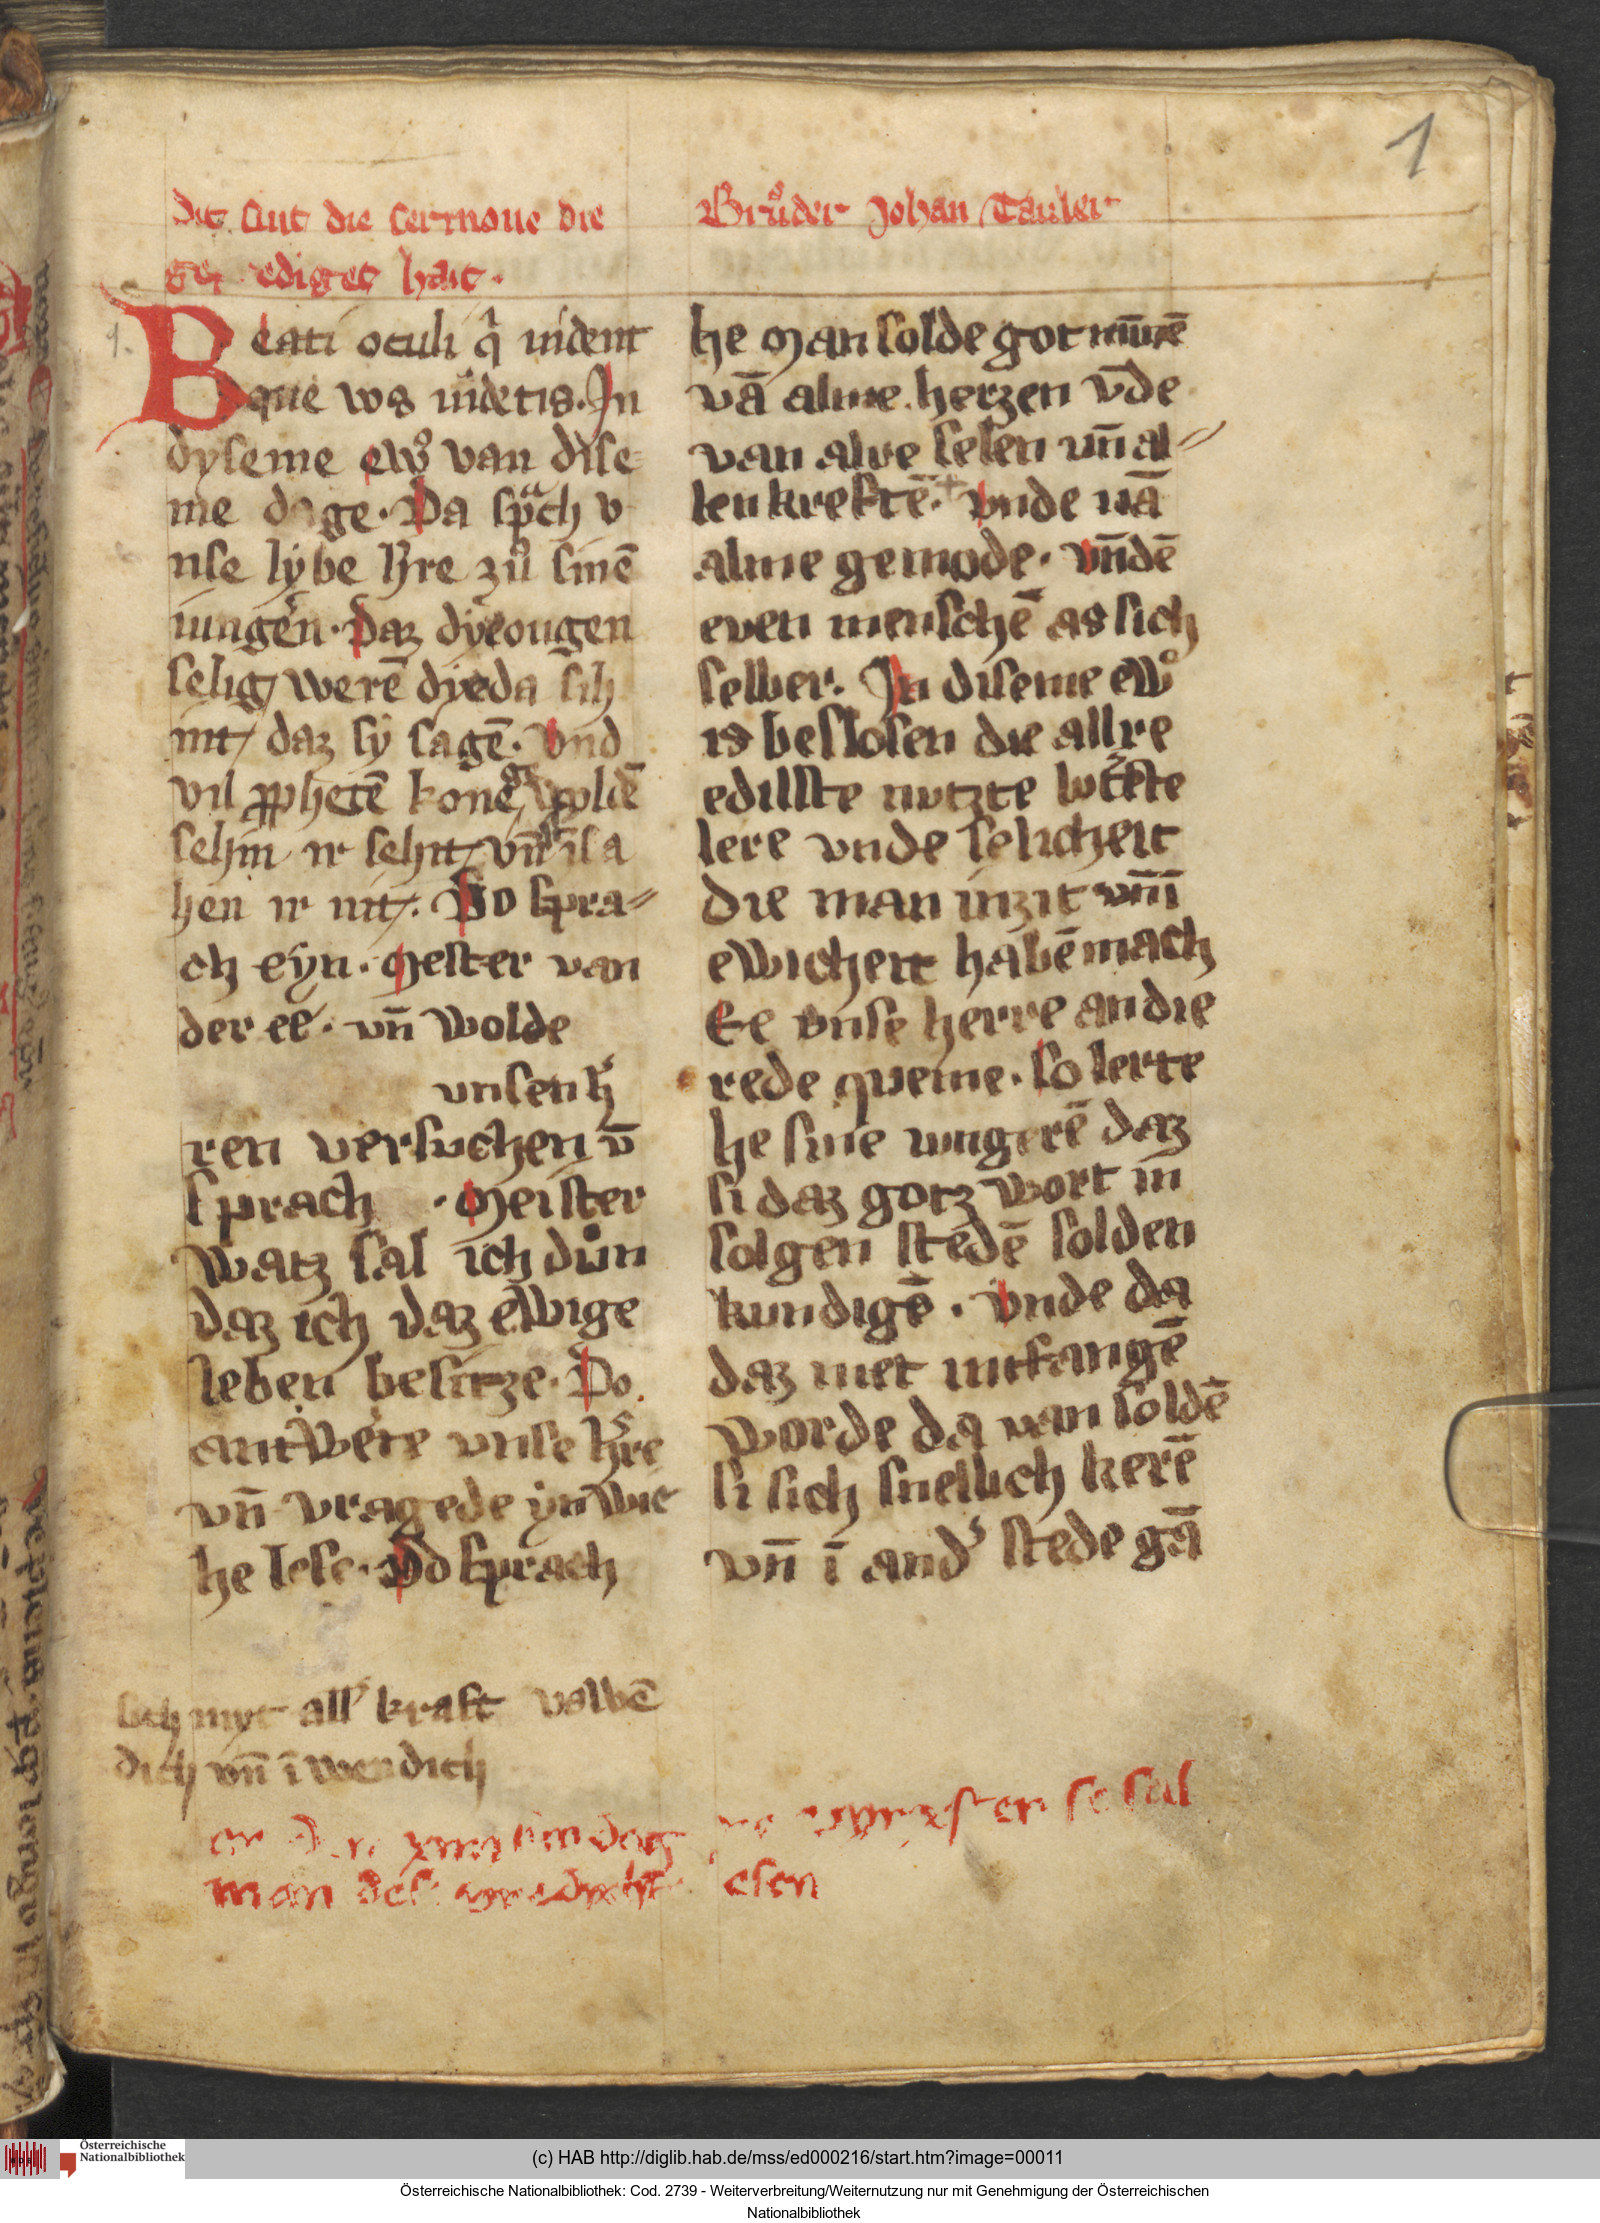 1
Dit sint die sermone die
ediget hait.
Bruͦder Johan Tauler
1.
Beati oculi q̇ uident
que vos uidetis. In
dyseme ewͦ van dise
me dage. Da spᵃch v
nse lybe h̓re zuͦ sinē
iungern. Daz dye ougen
selig werē dye da sih
int daz sy sagē. Vnd
vil ꝓphetē konege woldē
sehin ir sehit vn̄ in sa
hen ir nit. Do spra
ch eyn. Mester van
der ee. vn̄ wolde
vnsen h̓
ren versuchen vn̄
sprach . Meister
watz sal ich duͦn
daz ich daz ewige
leben besitze. Do
antwerte vnse h̓re
vn̄ vragede yn wie
he lese. Do sprach
he Man solde got minnē
vā alme herzen vn̄de
van alre selen vn̄ al
len kreftē. Vnde uā
alme gemode. Vn̄ dē
even menschē as sich
selber. In diseme ewͦ
is beslosen die allre
edillste nutzte
lere vnde selicheit
die man in zit vn̄ in
ewicheit habē mach
Ee vnse herre an die
rede queme. So lerte
he sine iungerē daz
si daz gotz wort in
solgen stedē solden
kundigē. Vnde da
daz niet intfangē
worde da van soldē
si sich snellich kerē
vn̄ ī and̓ stede gā
sich myt all̓ kraft vswē
dich vn̄ ī wendich
man des esen
sal
(c) HAB http://diglib.hab.de/mss/ed000216/start.htm?image=00011
Österreichische
Nationalbibliothek
Österreichische Nationalbibliothek: Cod. 2739 - Weiterverbreitung/Weiternutzung nur mit Genehmigung der Österreichischen
Nationalbibliothek